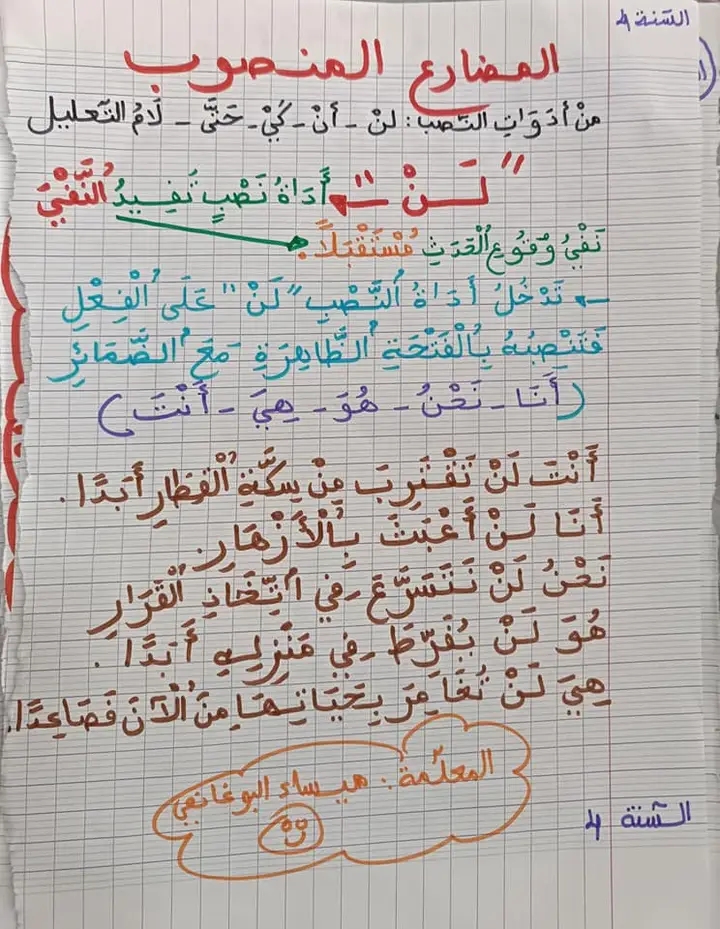 السّنة 4
المضارع المنصوب
منْ أدَوَاتِ النّصب: لنْ - أنْ - كيْ - حَتَّى - لَامُ التّعليل
"لَنْ" ← أَدَاةُ نَصْبٍ تُفِيدُ النَّفْيَ
نَفْيُ وُقُوعِ الْحَدَثِ مُسْتَقْبَلًا.
← تَدْخُلُ أَدَاةُ النَّصْبِ "لَنْ" عَلَى الْفِعْلِ
فَتَنْصِبُهُ بِالْفَتْحَةِ الظَّاهِرَةِ مَعَ الضَّمَائِرِ
(أَنَا - نَحْنُ - هُوَ - هِيَ - أَنْتَ)
أَنْتَ لَنْ تَقْتَرِبَ مِنْ سِكَّةِ الْقِطَارِ أَبَدًا.
أَنَا لَنْ أَعْبَثَ بِالْأَزْهَارِ.
نَحْنُ لَنْ نَتَسَرَّعَ فِي اتِّخَاذِ الْقَرَارِ
هُوَ لَنْ يُفَرِّطَ فِي مَنْزِلِهِ أَبَدًا.
هِيَ لَنْ تُغَامِرَ بِحَيَاتِهَا مِنَ الْآنَ فَصَاعِدًا.
المعلّمة: ميساء البوغانمي
السّنة 4